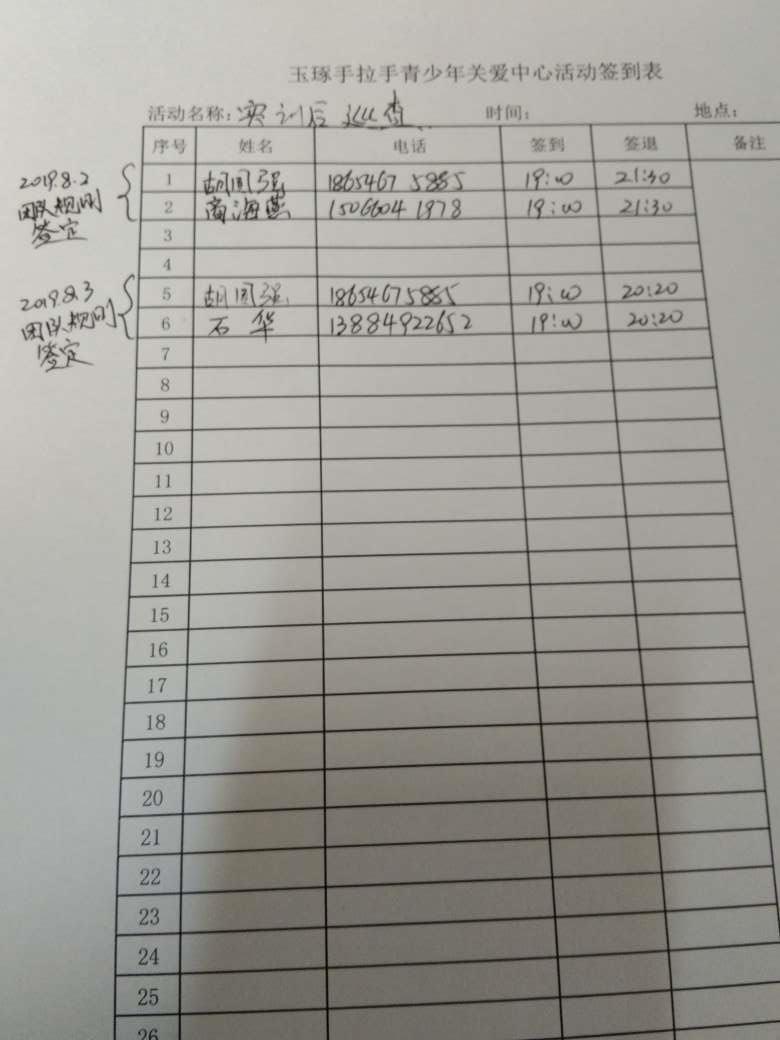 玉琢手拉手青少年关爱中心活动签到表
活动名称: 实训后巡查 时间: 地点:
序号 姓名 电话 签到 签退 备注
2019.8.2
团队规则
签定
1 胡国强 18654675885 19:00 21:30
2 商海燕 15066041978 19:00 21:30
3
4
2019.8.3
团队规则
签定
5 胡国强 18654675885 19:00 20:20
6 石华 13884922652 19:00 20:20
7
8
9
10
11
12
13
14
15
16
17
18
19
20
21
22
23
24
25
26